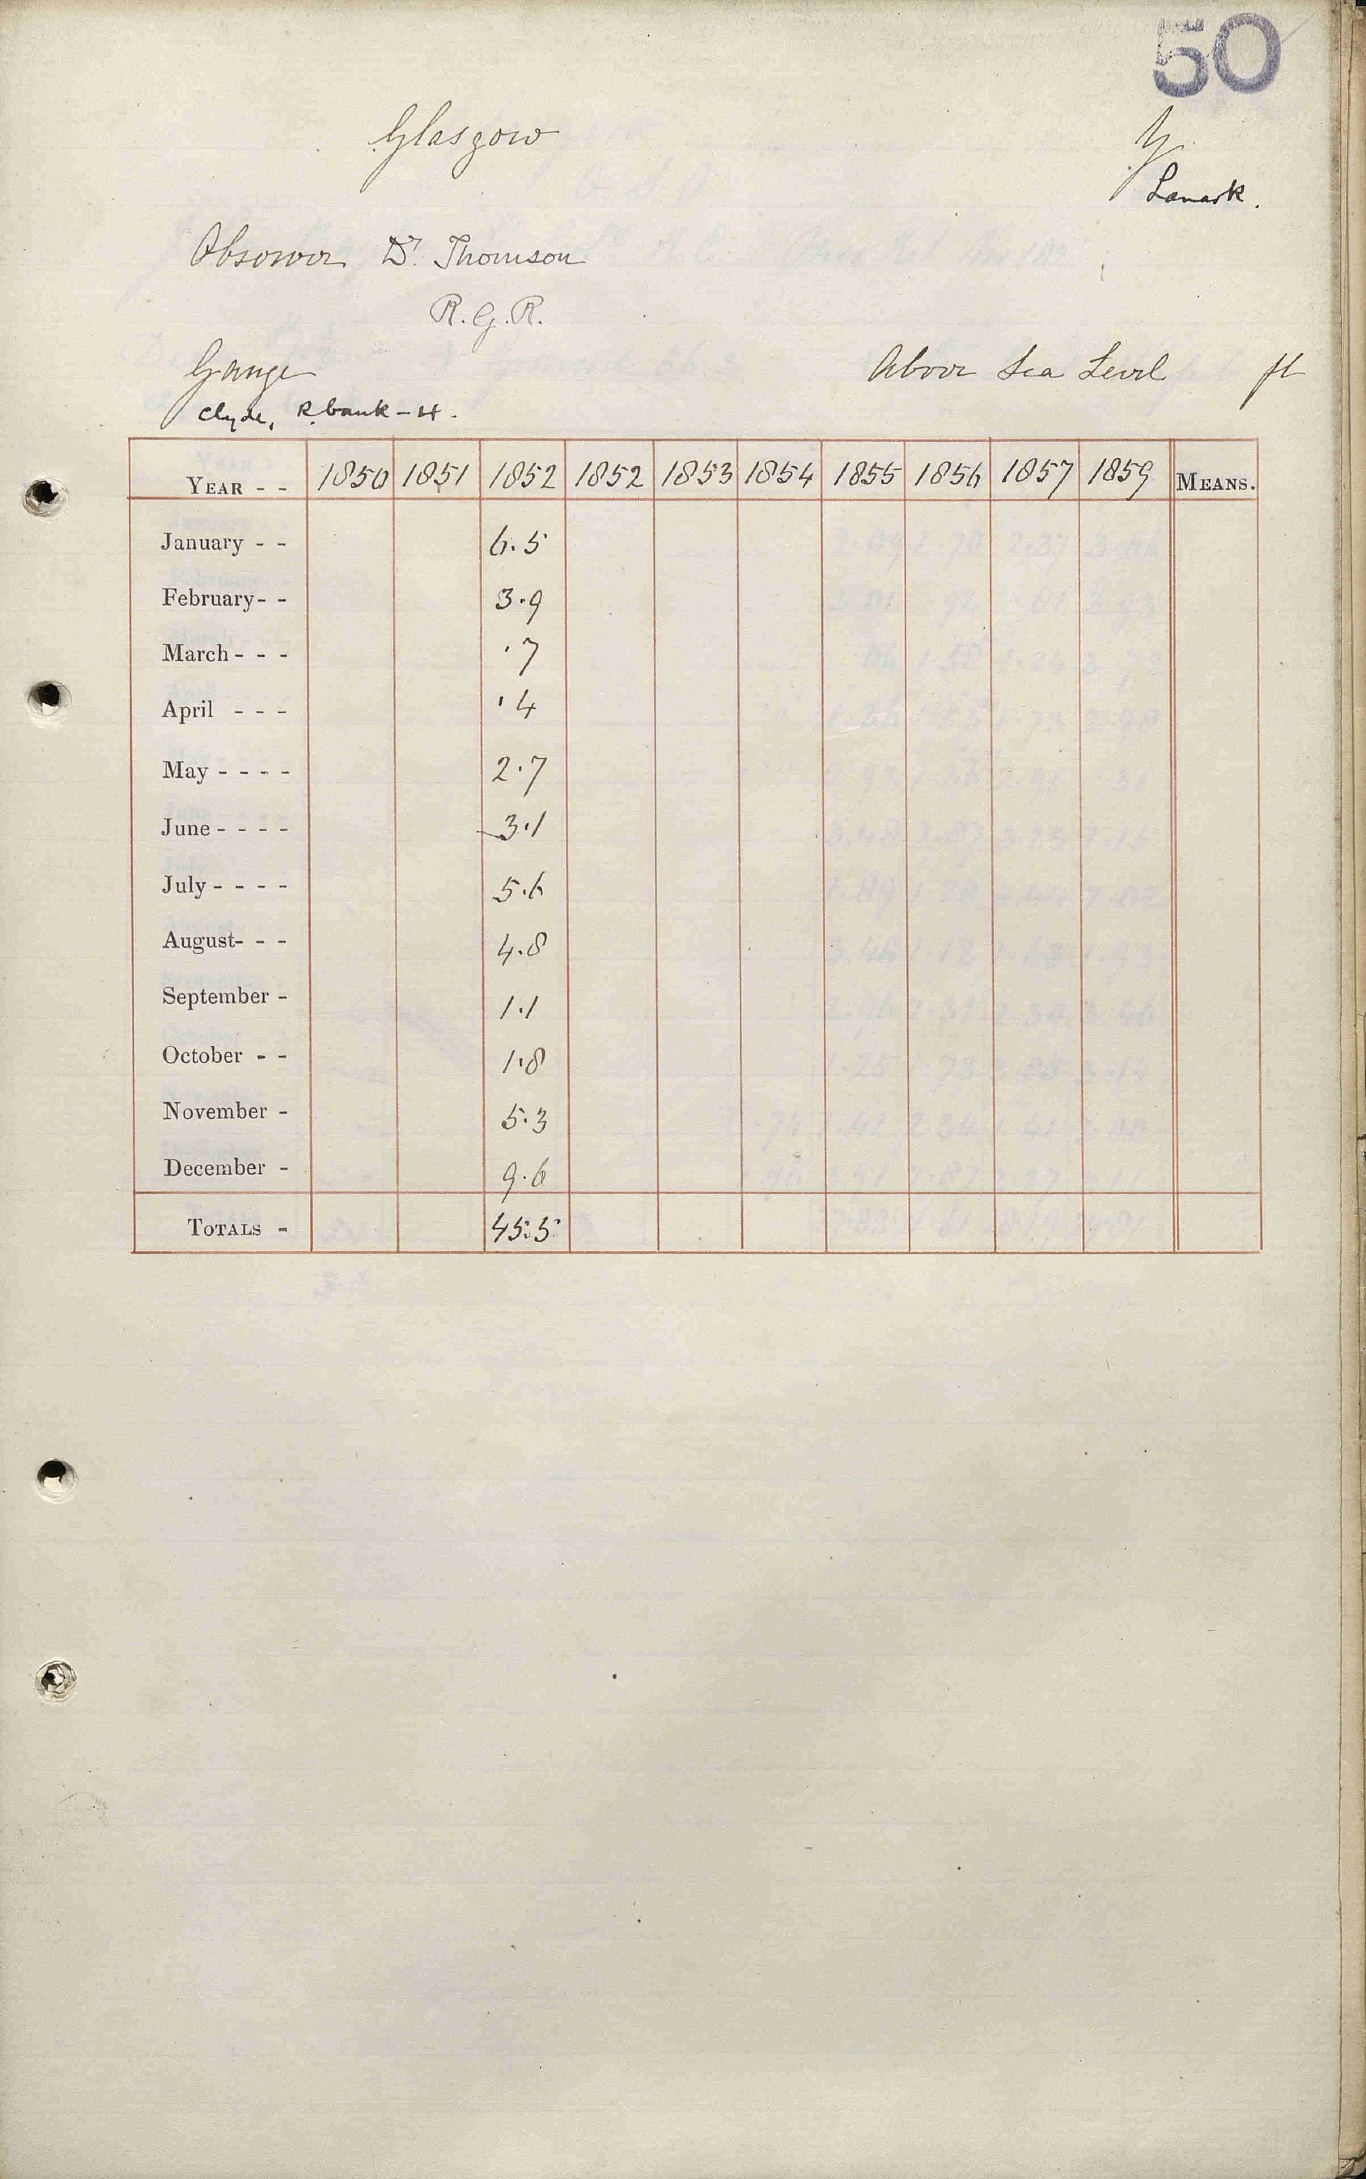 50
Glasgow
Y
Lanark.
Observer Dr. Thomson
R.G.R.
Gauge Above Sea Level ft
Clyde, R. bank - H.
YEAR - - 1850 1851 1852 1852 1853 1854 1855 1856 1857 1859 MEANS.
January - - 6.5
February - - 3.9
March - - - .7
April - - - .4
May - - - - 2.7
June - - - - 3.1
July - - - - 5.6
August - - - 4.8
September - 1.1
October - - 1.8
November - 5.3
December - 9.6
TOTALS - 45.5